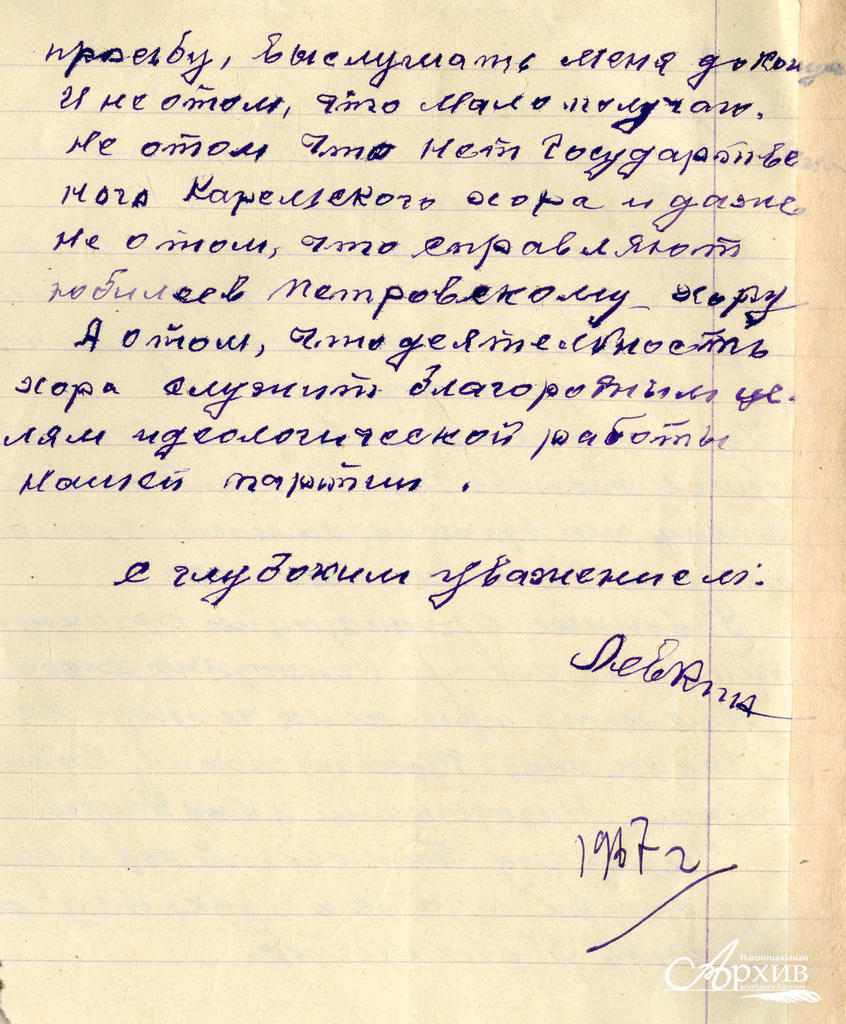 просьбу, выслушать меня до конца
И не о том, что мало получаю.
Не о том что нет Государстве
ного Карельского хора и даже
не о том, что справляют
юбилеев Петровскому хору
А о том, что деятельность
хора служит благородным це-
лям идеологической работы
нашей партии.
с глубоким уважением.
Левкин
1967 г
Национальный
Архив
Республики Карелия